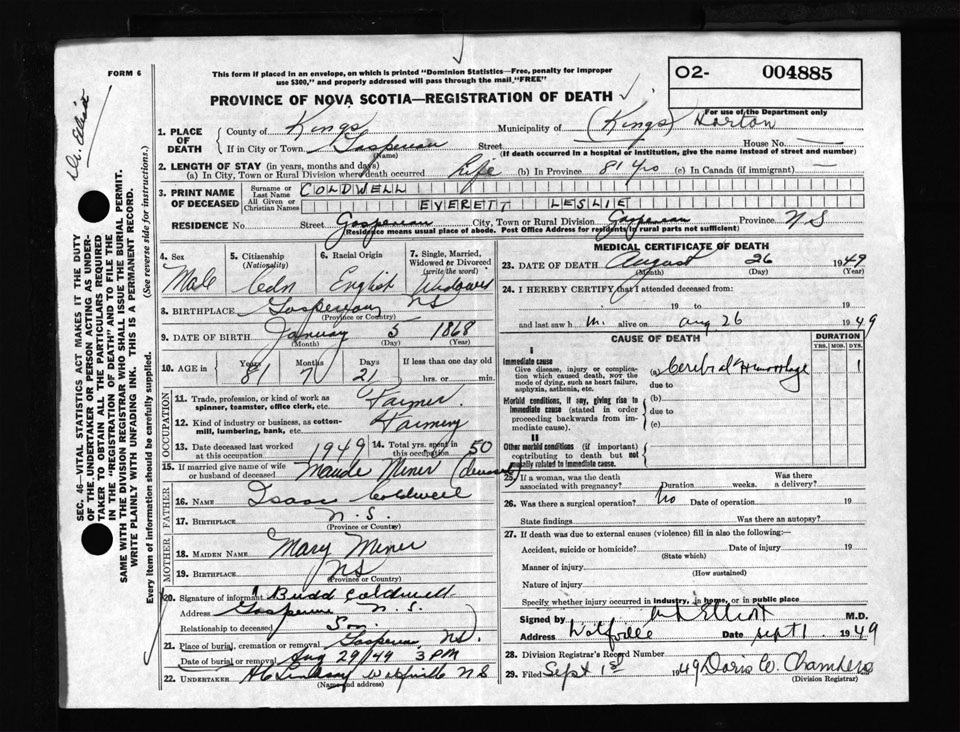 FORM 6
This form if placed in an envelope, on which is printed "Dominion Statistics—Free, penalty for improper
use $300," and properly addressed will pass through the mail "FREE"
O2- 004885
For use of the Department only
PROVINCE OF NOVA SCOTIA—REGISTRATION OF DEATH
Dr. Elliott
SEC. 46—VITAL STATISTICS ACT MAKES IT THE DUTY
OF THE UNDERTAKER OR PERSON ACTING AS UNDER-
TAKER TO OBTAIN ALL THE PARTICULARS REQUIRED
IN THE "REGISTRATION OF DEATH" AND TO FILE THE
SAME WITH THE DIVISION REGISTRAR WHO SHALL ISSUE THE BURIAL PERMIT.
WRITE PLAINLY WITH UNFADING INK. THIS IS A PERMANENT RECORD.
Every item of information should be carefully supplied. (See reverse side for instructions.)
1. PLACE OF DEATH
County of Kings Municipality of (Kings) Horton
If in City or Town Gaspereau Street House No.
(Name) (If death occurred in a hospital or institution, give the name instead of street and number)
2. LENGTH OF STAY (in years, months and days)
(a) In City, Town or Rural Division where death occurred Life (b) In Province 81 yrs (c) In Canada (if immigrant) —
3. PRINT NAME OF DECEASED
Surname or Last Name COLDWELL
All Given or Christian Names EVERETT LESLIE
RESIDENCE No. Street Gaspereau City, Town or Rural Division Gaspereau Province NS
Residence means usual place of abode. Post Office Address for residents in rural parts not sufficient)
4. Sex Male
5. Citizenship (Nationality) Cdn
6. Racial Origin English
7. Single, Married, Widowed or Divorced (write the word) Widower
8. BIRTHPLACE Gaspereau NS
(Province or Country)
9. DATE OF BIRTH January 5 1868
(Month) (Day) (Year)
10. AGE in Years 81 Months 7 Days 21 If less than one day old
hrs. or min.
OCCUPATION
11. Trade, profession, or kind of work as
spinner, teamster, office clerk, etc. Farmer.
12. Kind of industry or business, as cotton-
mill, lumbering, bank, etc. Farming
13. Date deceased last worked at this occupation 1949 14. Total yrs. spent in this occupation 50
15. If married give name of wife or husband of deceased Maude Miner (deceased)
FATHER
16. NAME Isaac Coldwell
17. BIRTHPLACE N.S.
(Province or Country)
MOTHER
18. MAIDEN NAME Mary Miner
19. BIRTHPLACE NS
(Province or Country)
20. Signature of informant Budd Coldwell
Address Gaspereau N.S.
Relationship to deceased Son.
21. Place of burial, cremation or removal Gaspereau NS.
Date of burial or removal Aug 29/49 3 PM
22. UNDERTAKER Lindsay Wolfville NS
(Name and address)
MEDICAL CERTIFICATE OF DEATH
23. DATE OF DEATH August 26 1949
(Month) (Day) (Year)
24. I HEREBY CERTIFY that I attended deceased from:
19 to 19
and last saw h m. alive on Aug 26 1949
CAUSE OF DEATH DURATION
YRS. MOS. DYS.
I
Immediate cause
Give disease, injury or complica-
tion which caused death, NOT the
mode of dying, such as heart failure,
asphyxia, asthenia, etc.
(a) Cerebral Hemorrhage 1
due to
Morbid conditions, if any, giving rise to
immediate cause (stated in order
proceeding backwards from im-
mediate cause).
(b)
due to
(c)
II
Other morbid conditions (if important)
contributing to death but not
causally related to immediate cause.
25. If a woman, was the death associated with pregnancy? Duration weeks. Was there a delivery?
26. Was there a surgical operation? No Date of operation 19
State findings Was there an autopsy?
27. If death was due to external causes (violence) fill in also the following:—
Accident, suicide or homicide? Date of injury 19
(State which)
Manner of injury
(How sustained)
Nature of injury
Specify whether injury occurred in industry, in home, or in public place
Signed by Elliott M.D.
Address Wolfville Date Sept 1 1949
28. Division Registrar's Record Number
29. Filed Sept 1st 1949 Doris W. Chambers
(Division Registrar)